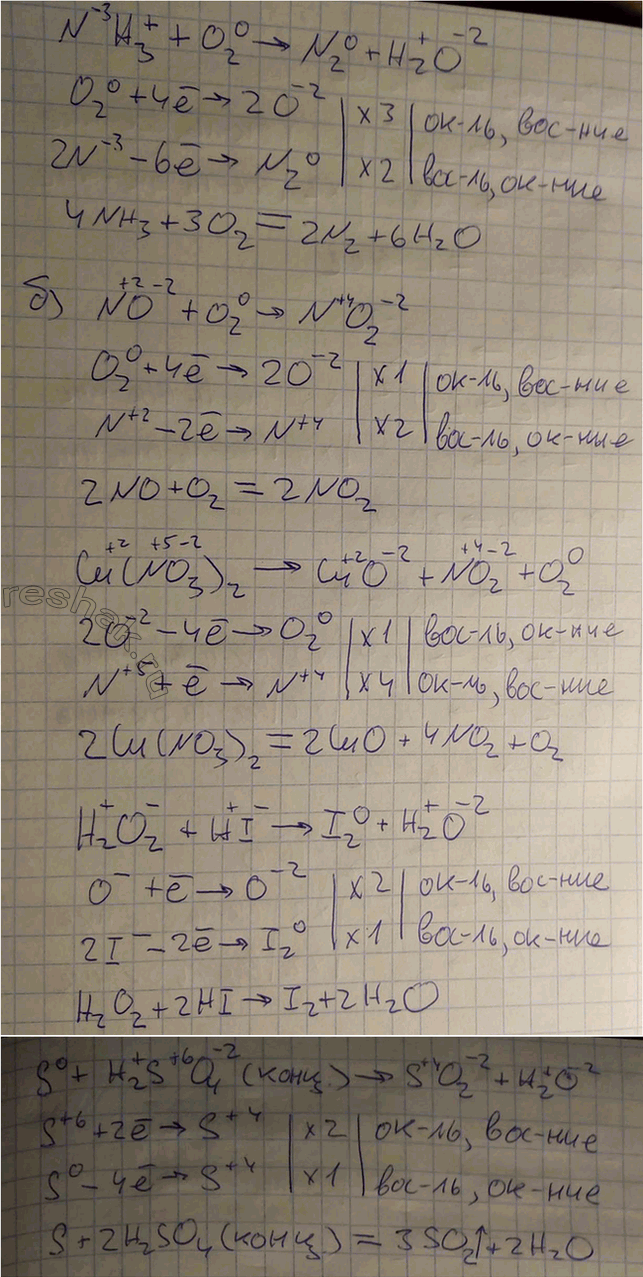 N⁻³H₃⁺ + O₂⁰ → N₂⁰ + H₂⁺O⁻²
O₂⁰ + 4ē → 2O⁻² | x3 | ок-ль, вос-ние
2N⁻³ - 6ē → N₂⁰ | x2 | вос-ль, ок-ние
4NH₃ + 3O₂ = 2N₂ + 6H₂O
б) N⁺²O⁻² + O₂⁰ → N⁺⁴O₂⁻²
O₂⁰ + 4ē → 2O⁻² | x1 | ок-ль, вос-ние
N⁺² - 2ē → N⁺⁴ | x2 | вос-ль, ок-ние
2NO + O₂ = 2NO₂
Cu⁺²(N⁺⁵O₃⁻²)₂ → Cu⁺²O⁻² + N⁺⁴O₂⁻² + O₂⁰
2O⁻² - 4ē → O₂⁰ | x1 | вос-ль, ок-ние
N⁺⁵ + ē → N⁺⁴ | x4 | ок-ль, вос-ние
2Cu(NO₃)₂ = 2CuO + 4NO₂ + O₂
H₂⁺O₂⁻ + H⁺I⁻ → I₂⁰ + H₂⁺O⁻²
O⁻ + ē → O⁻² | x2 | ок-ль, вос-ние
2I⁻ - 2ē → I₂⁰ | x1 | вос-ль, ок-ние
H₂O₂ + 2HI → I₂ + 2H₂O
S⁰ + H₂⁺S⁺⁶O₄⁻² (конц.) → S⁺⁴O₂⁻² + H₂⁺O⁻²
S⁺⁶ + 2ē → S⁺⁴ | x2 | ок-ль, вос-ние
S⁰ - 4ē → S⁺⁴ | x1 | вос-ль, ок-ние
S + 2H₂SO₄ (конц.) = 3SO₂↑ + 2H₂O
reshak.ru